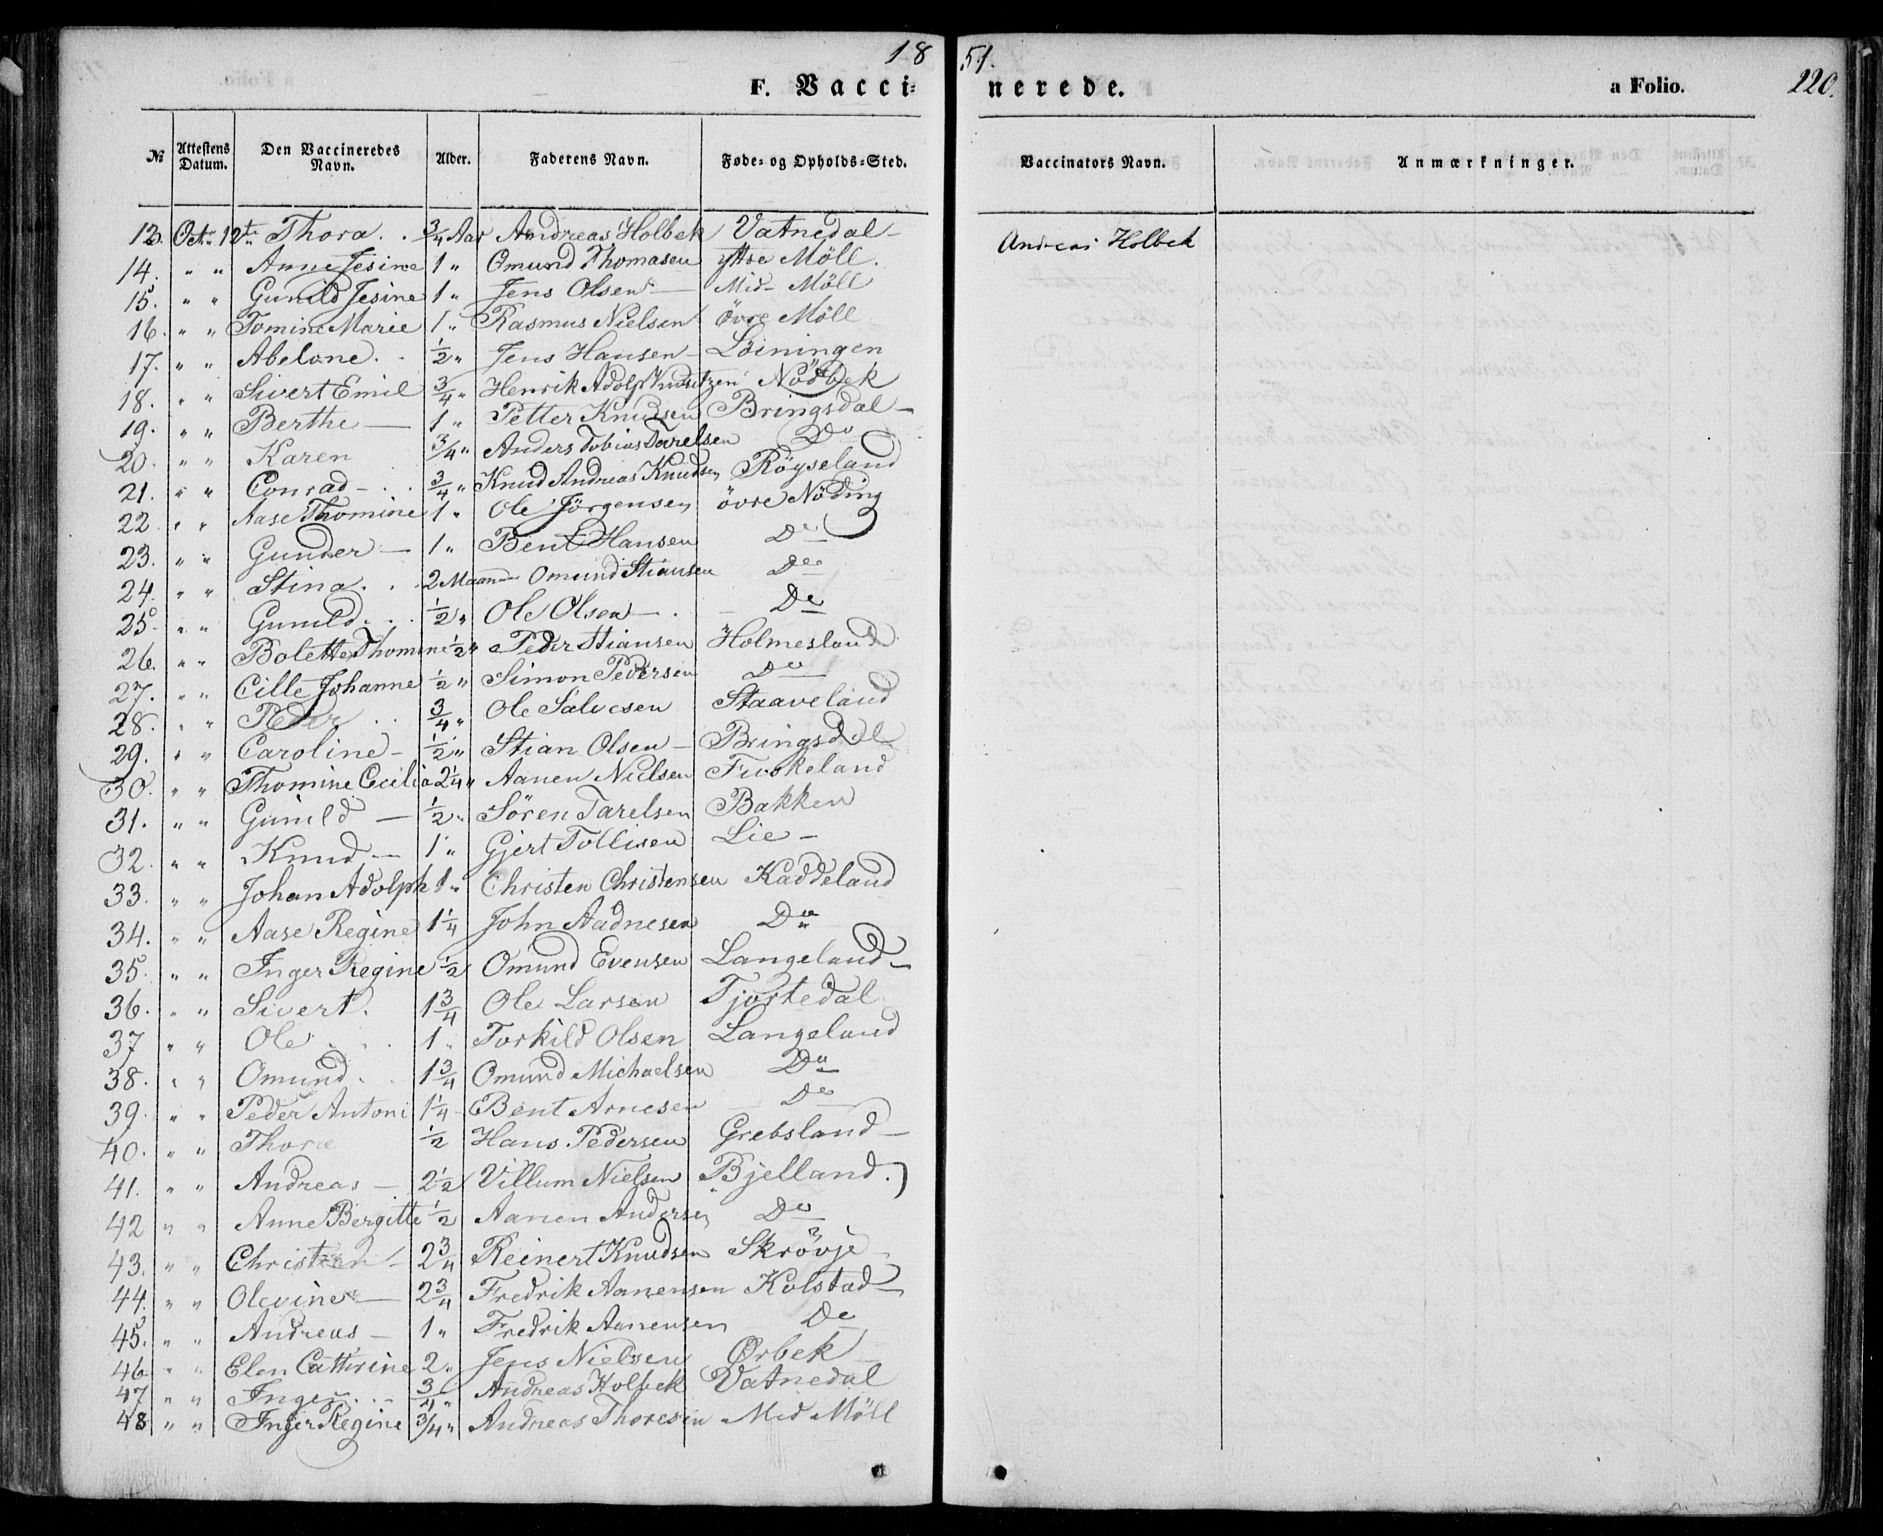 18 51.
F. Vacci- nerede. a Folio. 220.
№ Attestens Datum. Den Vaccineredes Navn. Alder. Faderens Navn. Føde- og Opholds-Sted. Vaccinators Navn. Anmærkninger.
13. Octr 12te Thora. . 3/4 Aar Andreas Holbek Vatnedal - Andreas Holbek
14. " " Anne Jesine 1 " Omund Thomasen yttre Möll.
15. " " Gunild Jesine 1 " Jens Olsen — Mid- Möll
16. " " Tomine Marie 1 " Rasmus Nielsen övre Möll
17. " " Abelone. . 1/2 " Jens Hansen - Löiningen
18. " " Sivert Emil 3/4 " Henrik Adolf Nödbek
19. " " Berthe — 1 " Petter Knudsen Bringsdal -
20. " " Karen 3/4 " Anders Tobias Tarelsen Do
21. " " Conrad - . . 3/4 " Knud Andreas Knudsen Röyseland
22. " " Aase Thomine 1 " Ole Jörgensen övre Nöding
23. " " Gunder — 1 " Bent Hansen Do
24. " " Stina. . . 2 Maan Omund Stiansen Do
25. " " Gunild. . . 1/2 " Ole Olsen — . - Do
26. " " Bolette Thomine 1/2 " Peder Stiansen Holmesland
27. " " Cille Johanne 1/2 " Simon Pedersen Do
28. " " Peder . . 3/4 " Ole Salvesen Staaveland
29. " " Caroline - 1/2 " Stian Olsen - Bringsdal
30. " " Thomine Cecilia 2 1/4 " Aanen Nielsen Fuskeland
31. " " Gunild — 1/2 " Sören Tarelsen Bakken
32. " " Knud — 1 " Gjert Tollisen Lie -
33. " " Johan Adolph 1 " Christen Christensen Kaddeland
34. " " Aase Regine 1 1/4 John Aadnesen Do
35. " " Inger Regine 1/2 Omund Evensen Langeland -
36. " " Sivert. 1 3/4 Ole Larsen Tjortedal
37 " " Ole . . . 1 " Torkild Olsen Langeland
38. " " Omund. . 1 3/4 Omund Michaelsen Do
39. " " Peder Antoni 1 1/4 - Bent Arnesen Do
40. " " Thora 1/2 Hans Pedersen Grebsland -
41. " " Andreas — 2 1/2 Villum Nielsen Bjelland.
42 " " Anne Bergitte 1/2 Aanen Andersen Do
43. " " Christen - 2 3/4 Reinert Knudsen Skrövje
44. " " Olevine — 2 3/4 Fredrik Aanensen Kolstad -
45. " " Andreas — 1 " Fredrik Aanensen Do
46. " " Elen Cathrine 2 " Jens Nielsen Ørbek
47 " " Inger. . . 3/4 " Andreas Holbek Vatnedal
48 " " Inger Regine 3/4 " Andreas Thoresen Mid Möll